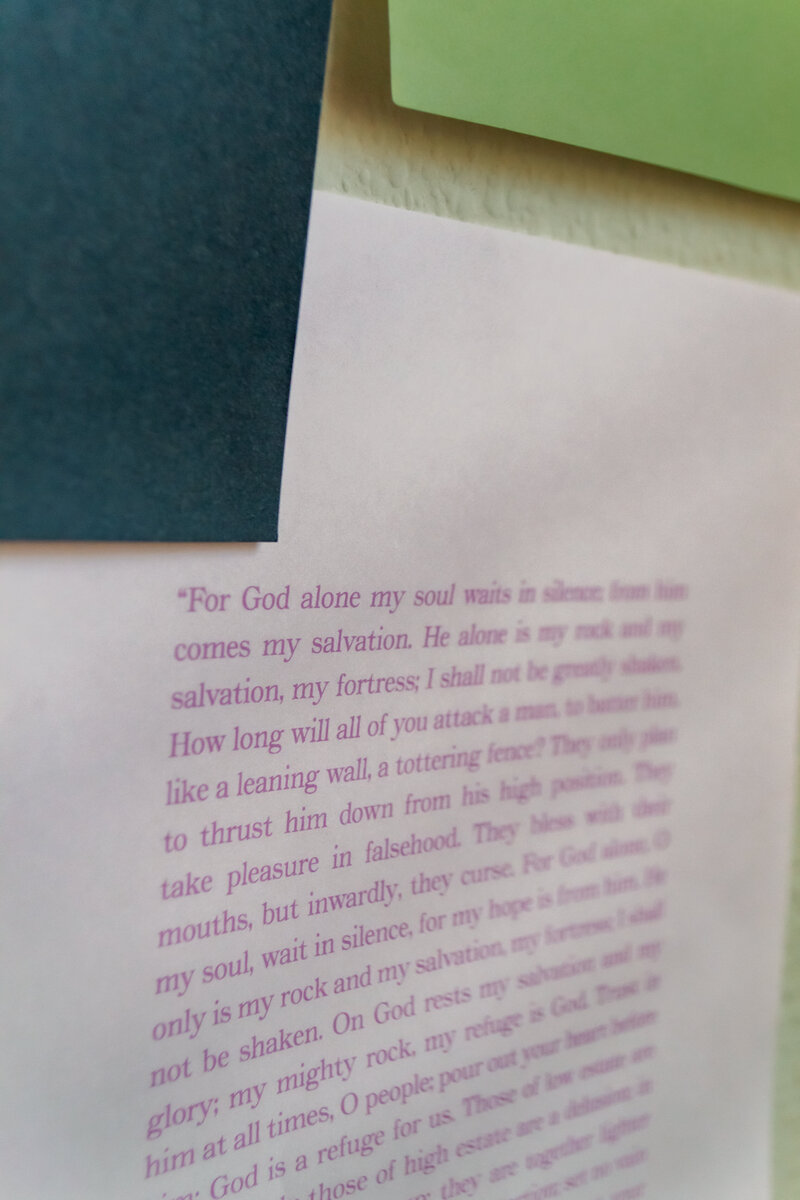 “For God alone my soul waits in silence; from him
comes my salvation. He alone is my rock and my
salvation, my fortress; I shall not be greatly shaken.
How long will all of you attack a man, to batter him,
like a leaning wall, a tottering fence? They only plan
to thrust him down from his high position. They
take pleasure in falsehood. They bless with their
mouths, but inwardly, they curse. For God alone, O
my soul, wait in silence, for my hope is from him. He
only is my rock and my salvation, my fortress; I shall
not be shaken. On God rests my salvation and my
glory; my mighty rock, my refuge is God. Trust in
him at all times, O people; pour out your heart before
God is a refuge for us. Those of low estate are
those of high estate are a delusion; in
they are together lighter
set no vain